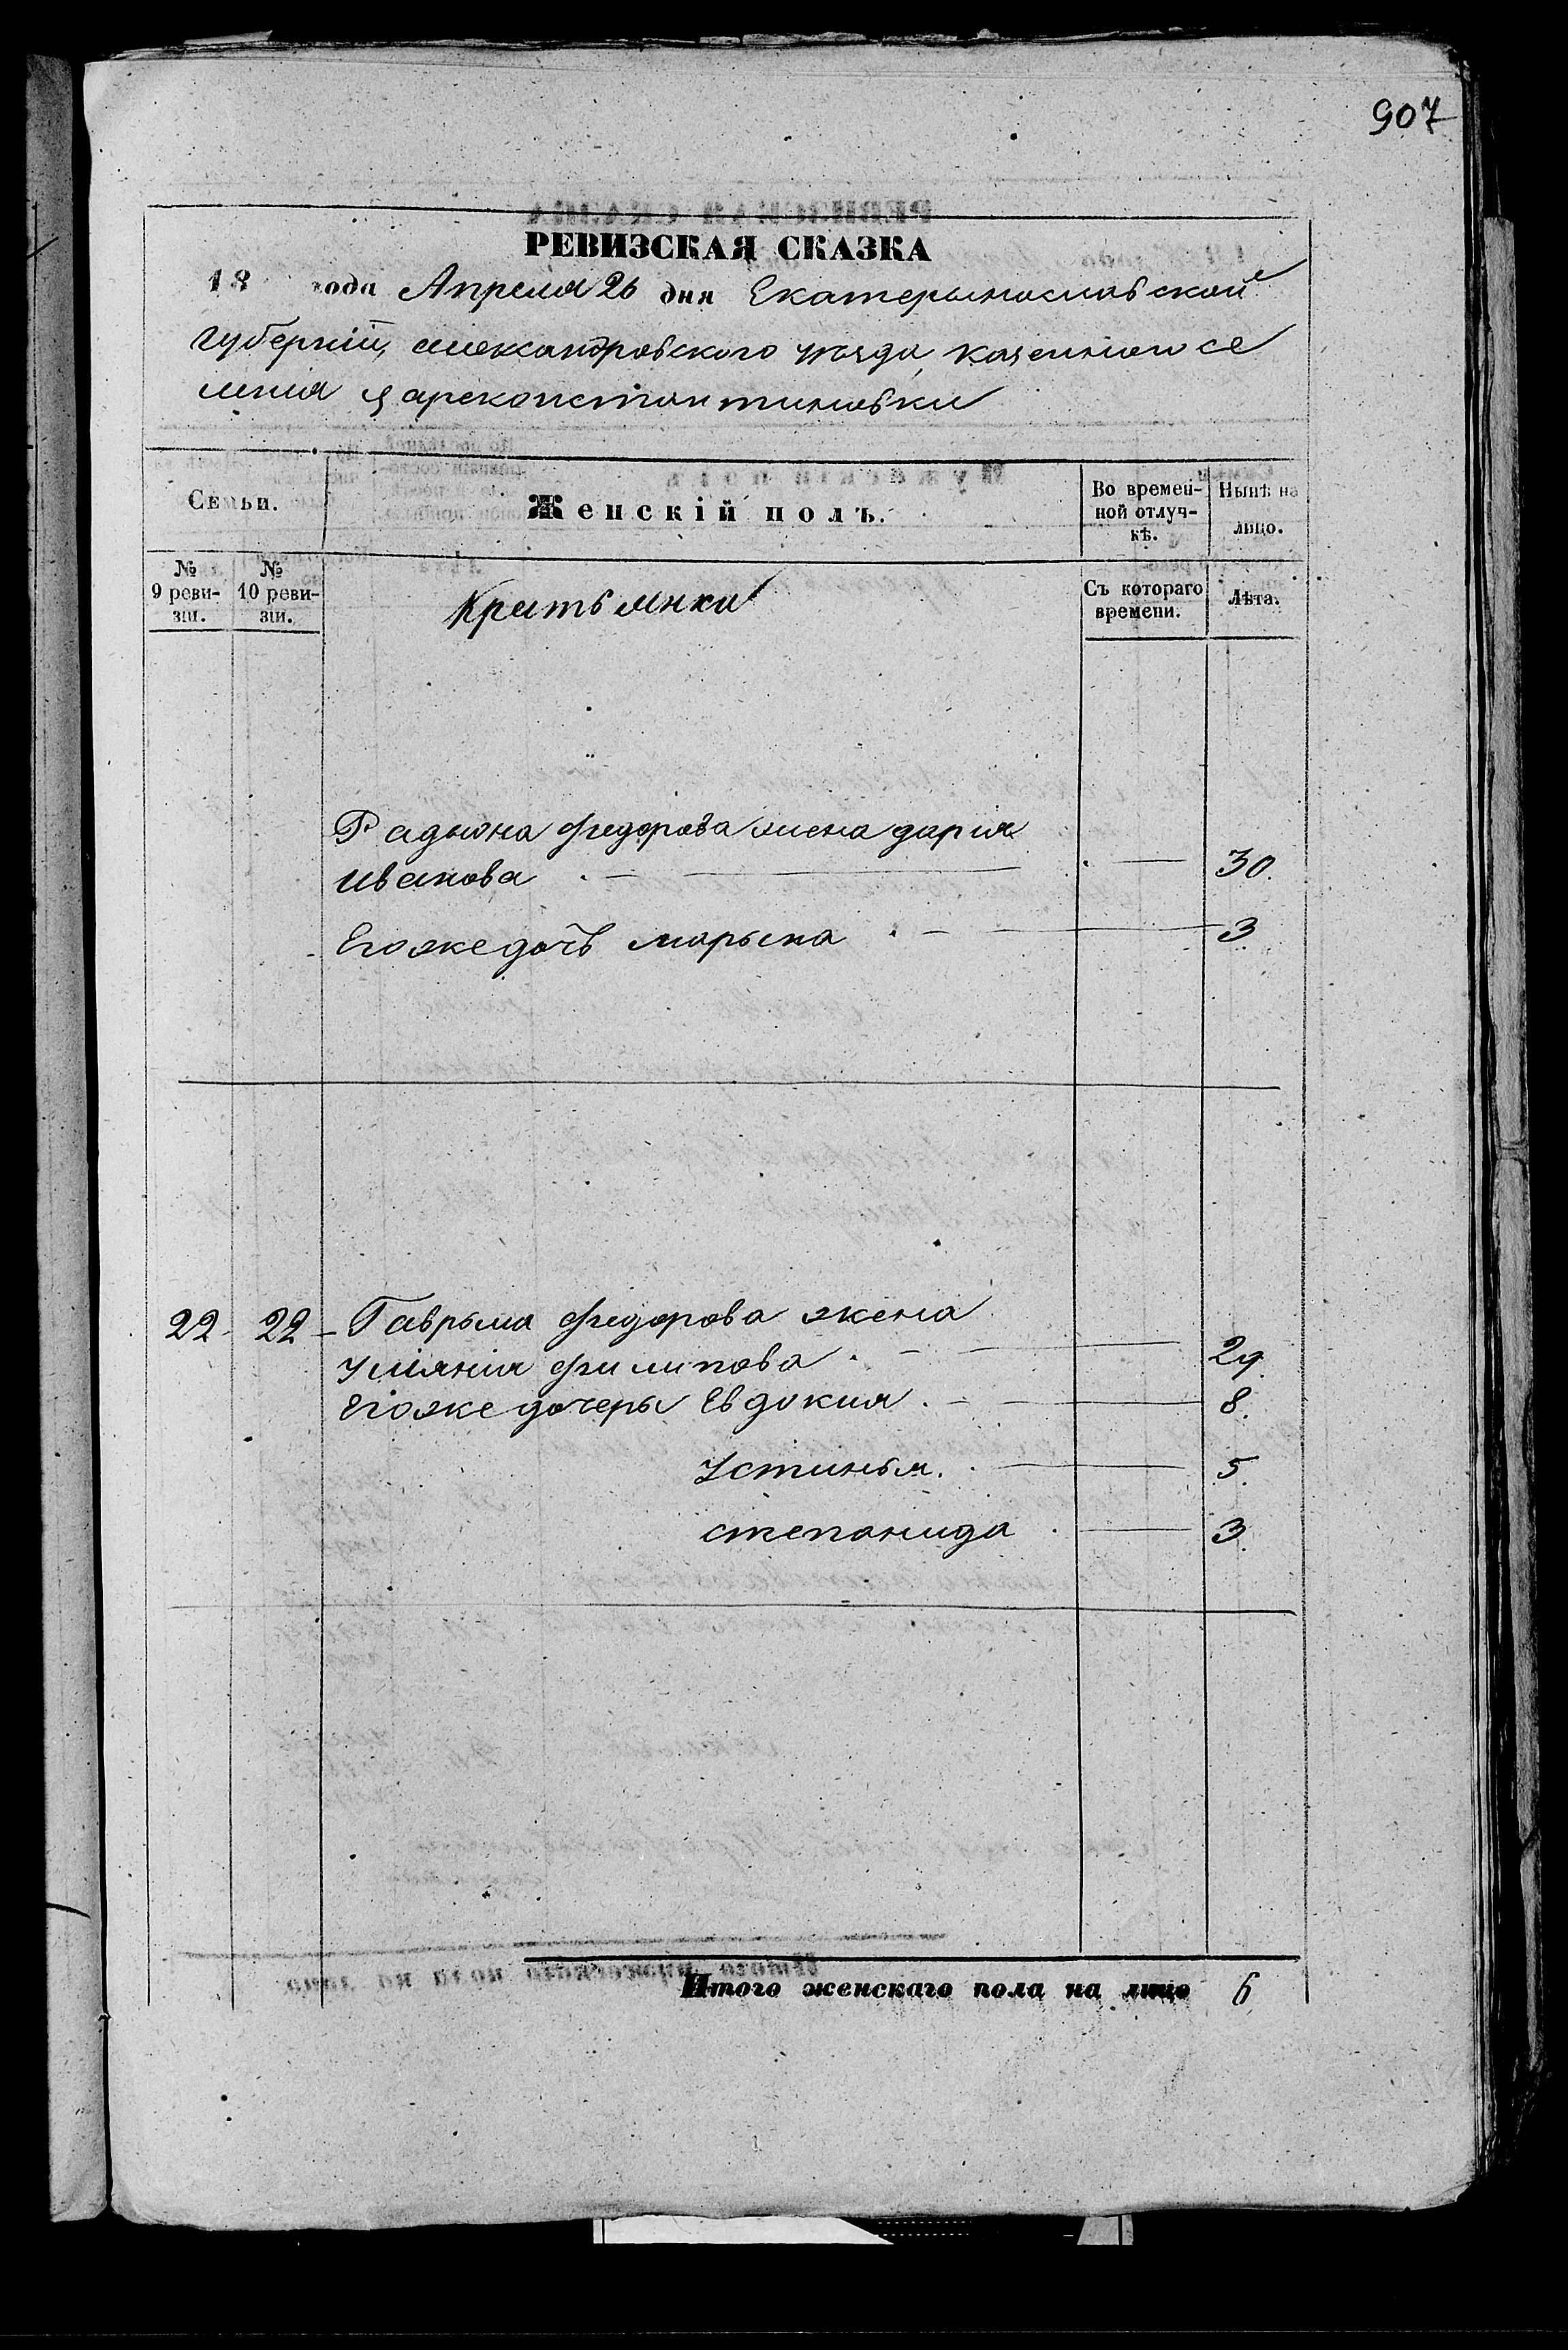 907
РЕВИЗСКАЯ СКАЗКА
18 года Апреля 26 дня Екатерынославской
губерніи, александровского уезда, казенного се
ления Цареконстантиновки
Семьи.
Женскій полъ.
Во времен-
ной отлуч-
кѣ.
Нынѣ на
лицо.
№
9 реви-
зіи.
№
10 реви-
зіи.
Съ котораго
времени.
Лѣта.
Радыона федорова жена дария
Иванова 30.
Егоже дочь марына 3
22. 22 Гаврыла федорова жена
Улияния филипова 29.
Егоже дочеры Евдокия 8.
Устинья. 5.
степанида 3.
Итого женскаго пола на лицо 6